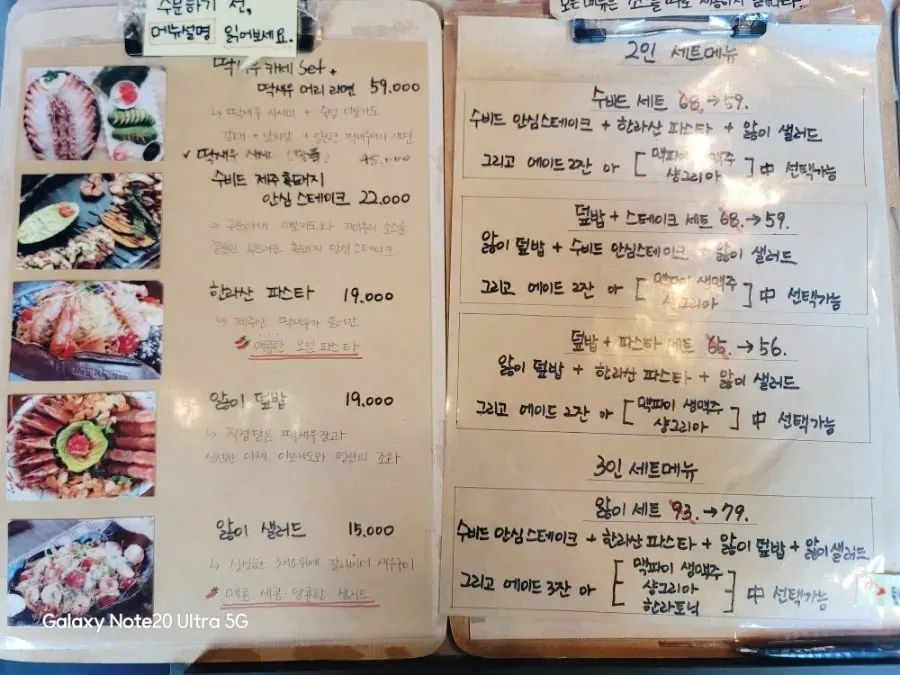 주문하기 전,
메뉴설명 읽어보세요.
딱새우 카페 Set +
딱새우 머리 라면 59.000
↳ 딱새우 사시미 +
수비드 제주흑돼지
안심스테이크 22.000
한라산 파스타 19.000
↳ 제주산 딱새우가 들어간
매콤한 오일 파스타
앓이 덮밥 19.000
↳ 직접담은 딱새우장과
신선한 야채, 아보카도와 명란의 조화
앓이 샐러드 15.000
↳ 싱싱한 채소위에
매콤·새콤·달콤한 샐러드
Galaxy Note20 Ultra 5G
2인 세트메뉴
수비드 세트 68. → 59.
수비드 안심스테이크 + 한라산 파스타 + 앓이 샐러드
그리고 에이드 2잔 or [ 맥파이 생맥주 샹그리아 ] 中 선택가능
덮밥 + 스테이크 세트 68. → 59.
앓이 덮밥 + 수비드 안심스테이크 + 앓이 샐러드
그리고 에이드 2잔 or [ 맥파이 생맥주 샹그리아 ] 中 선택가능
덮밥 + 파스타 세트 65. → 56.
앓이 덮밥 + 한라산 파스타 + 앓이 샐러드
그리고 에이드 2잔 or [ 맥파이 생맥주 샹그리아 ] 中 선택가능
3인 세트메뉴
앓이 세트 93. → 79.
수비드 안심스테이크 + 한라산 파스타 + 앓이 덮밥 + 앓이 샐러드
그리고 에이드 3잔 or [ 맥파이 생맥주 샹그리아 한라토닉 ] 中 선택가능